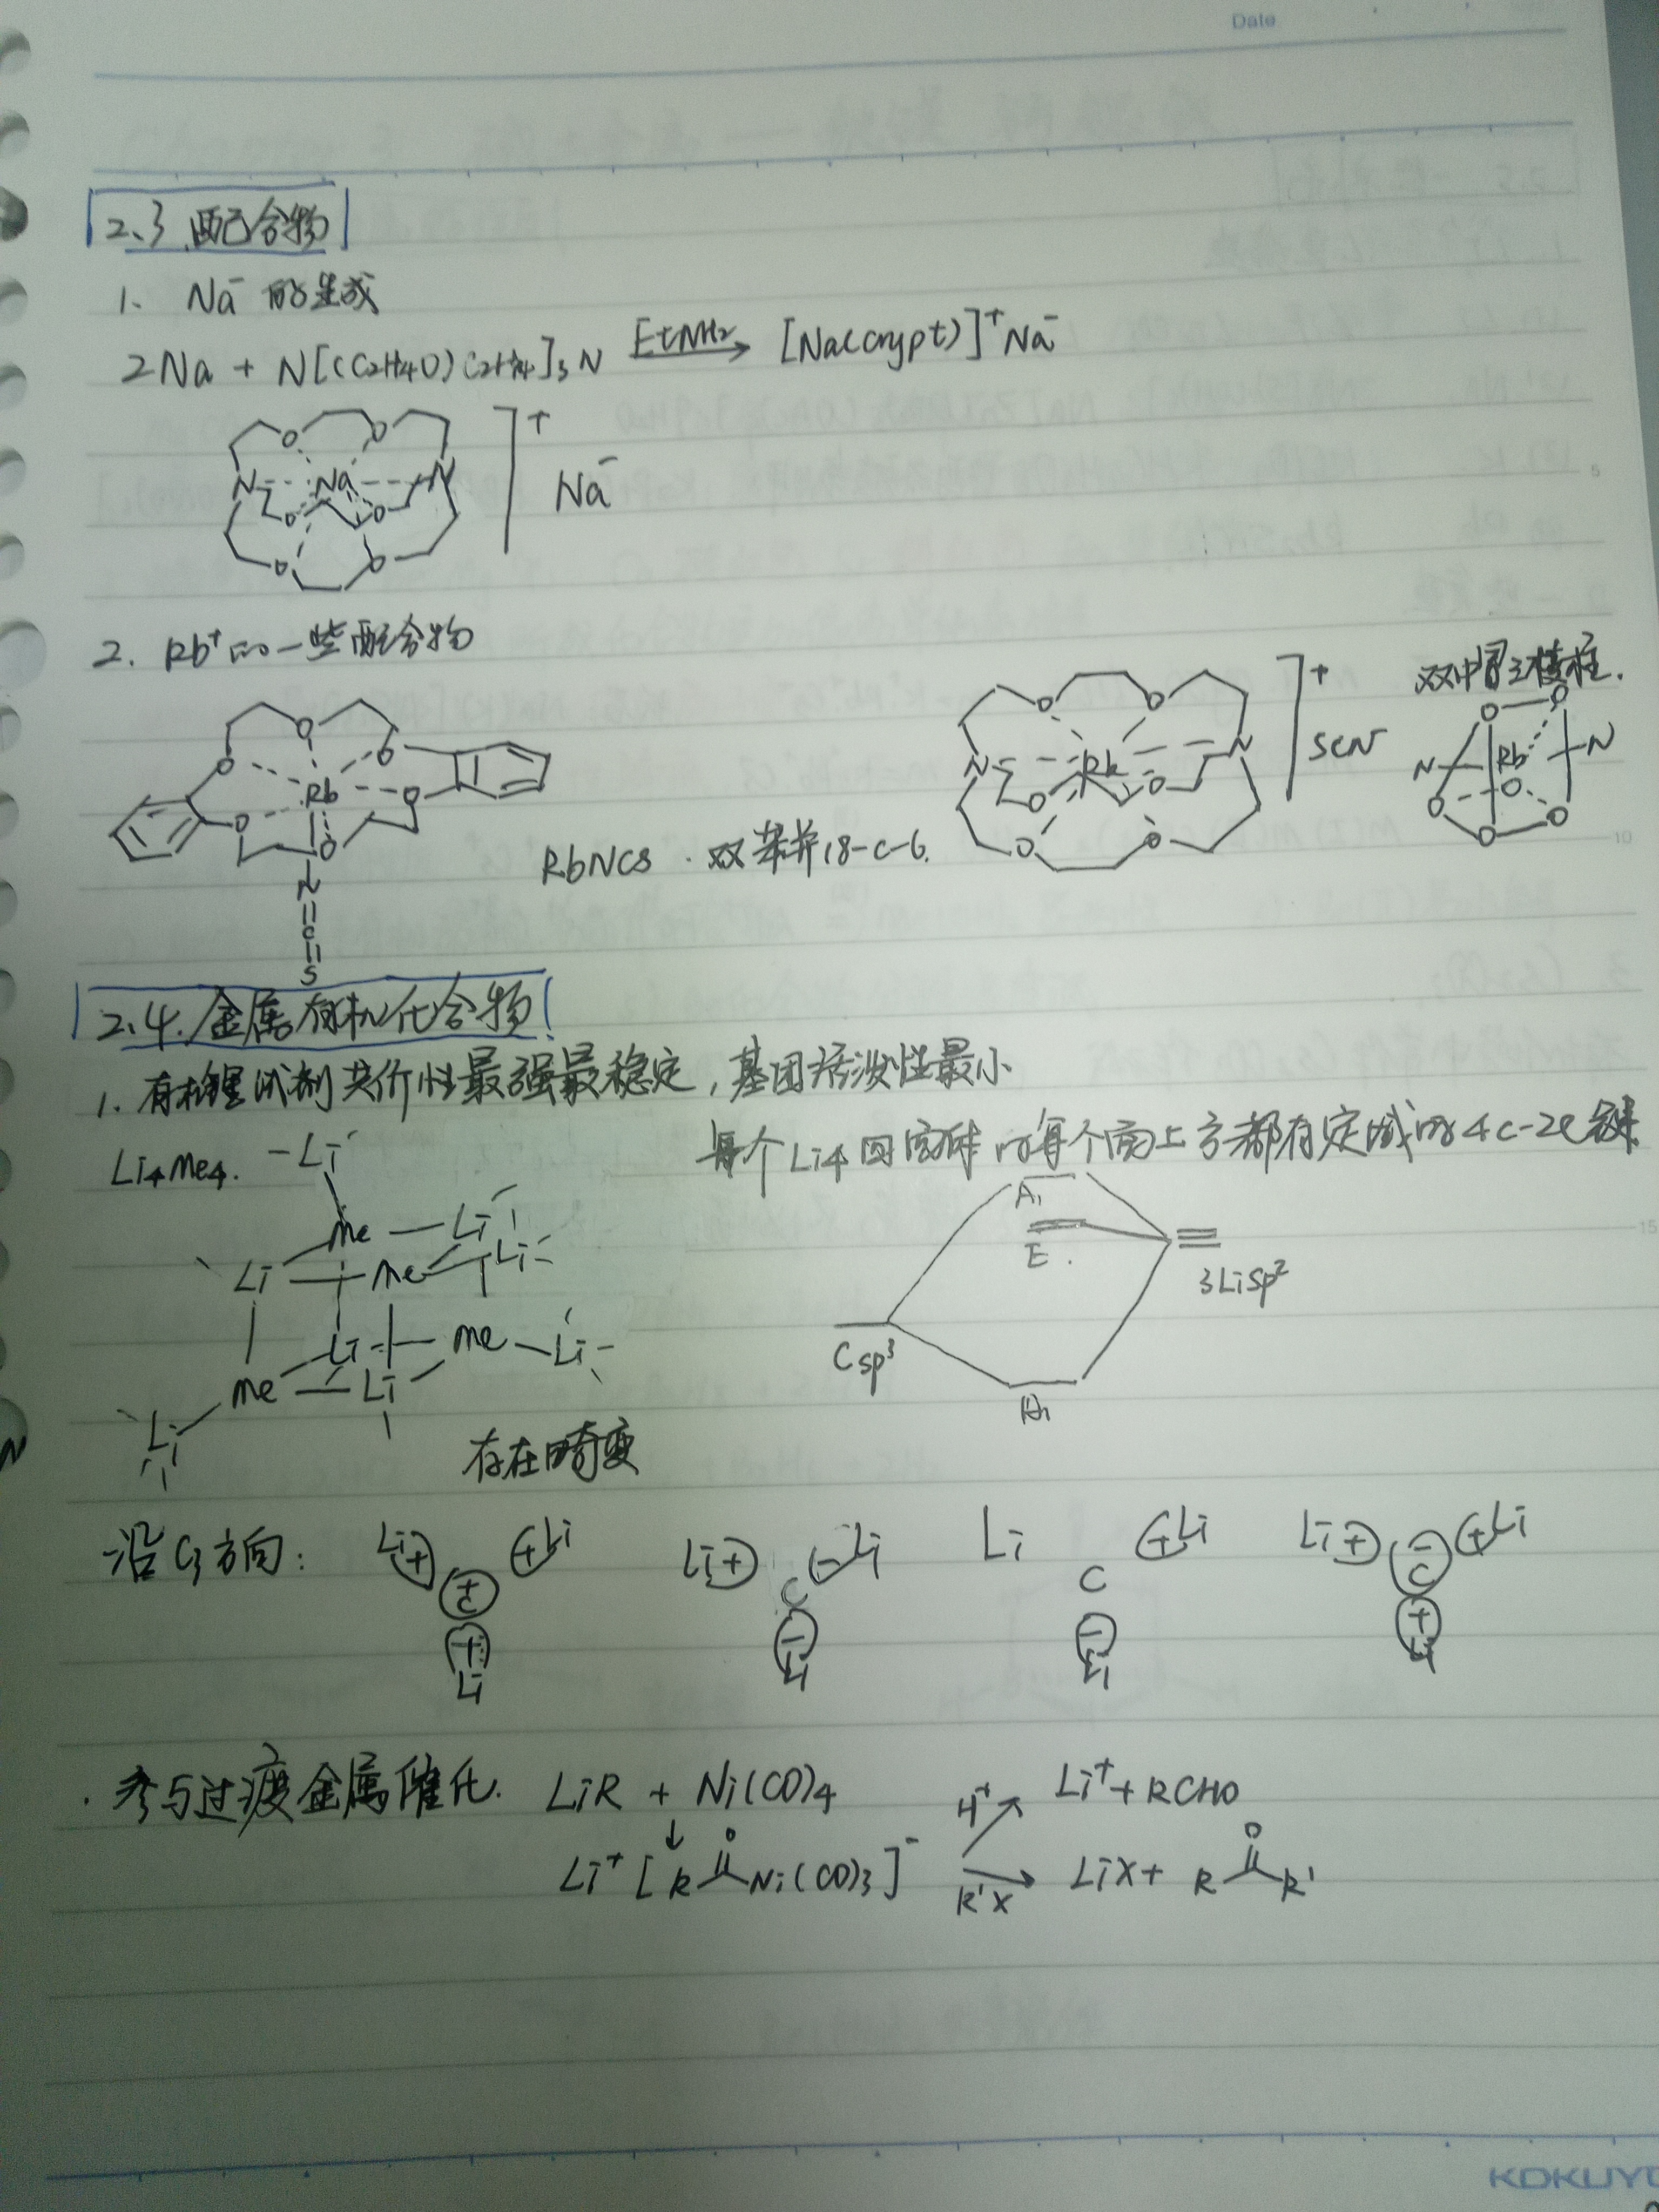 Date
2.3 配合物
1. Na⁻ 的生成
2Na + N[(C2H4O)C2H4]3N EtNH2 → [Na(crypt)]⁺Na⁻
O O ]⁺
N Na N Na⁻
O O
O O
2. Rb⁺的一些配合物
O O O ]⁺ 双帽三棱柱.
O O O O
Rb O N Rb N SCN N Rb N
O O O O O O
O O O O O
RbNCS · 双苯并18-c-6.
N
C
S
2.4. 金属有机化合物
1. 有机锂试剂共价性最强最稳定, 基团活泼性最小
Li4Me4. 每个Li4四面体的每个面上方都有定域的4c-2e键
Li A1
Me Li E
Li Me Li 3Lisp²
Li Me Li Csp³
Me Li A1
Li 存在畸变
沿C3方向: Li + + Li Li + - Li Li + Li Li + - + Li
+ C C C C
+ - - +
Li Li Li Li
· 参与过渡金属催化. LiR + Ni(CO)4 H⁺ ↗ Li⁺ + RCHO
↓ O O
Li⁺ [R Ni(CO)3]⁻ → R'X LiX + R R'
5
10
15
KOKUYO